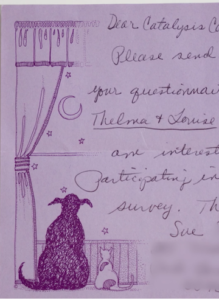 Dear Catalysis Co
Please send
your questionnai
Thelma & Louise
are interest
Participating in
survey. Th
Sue